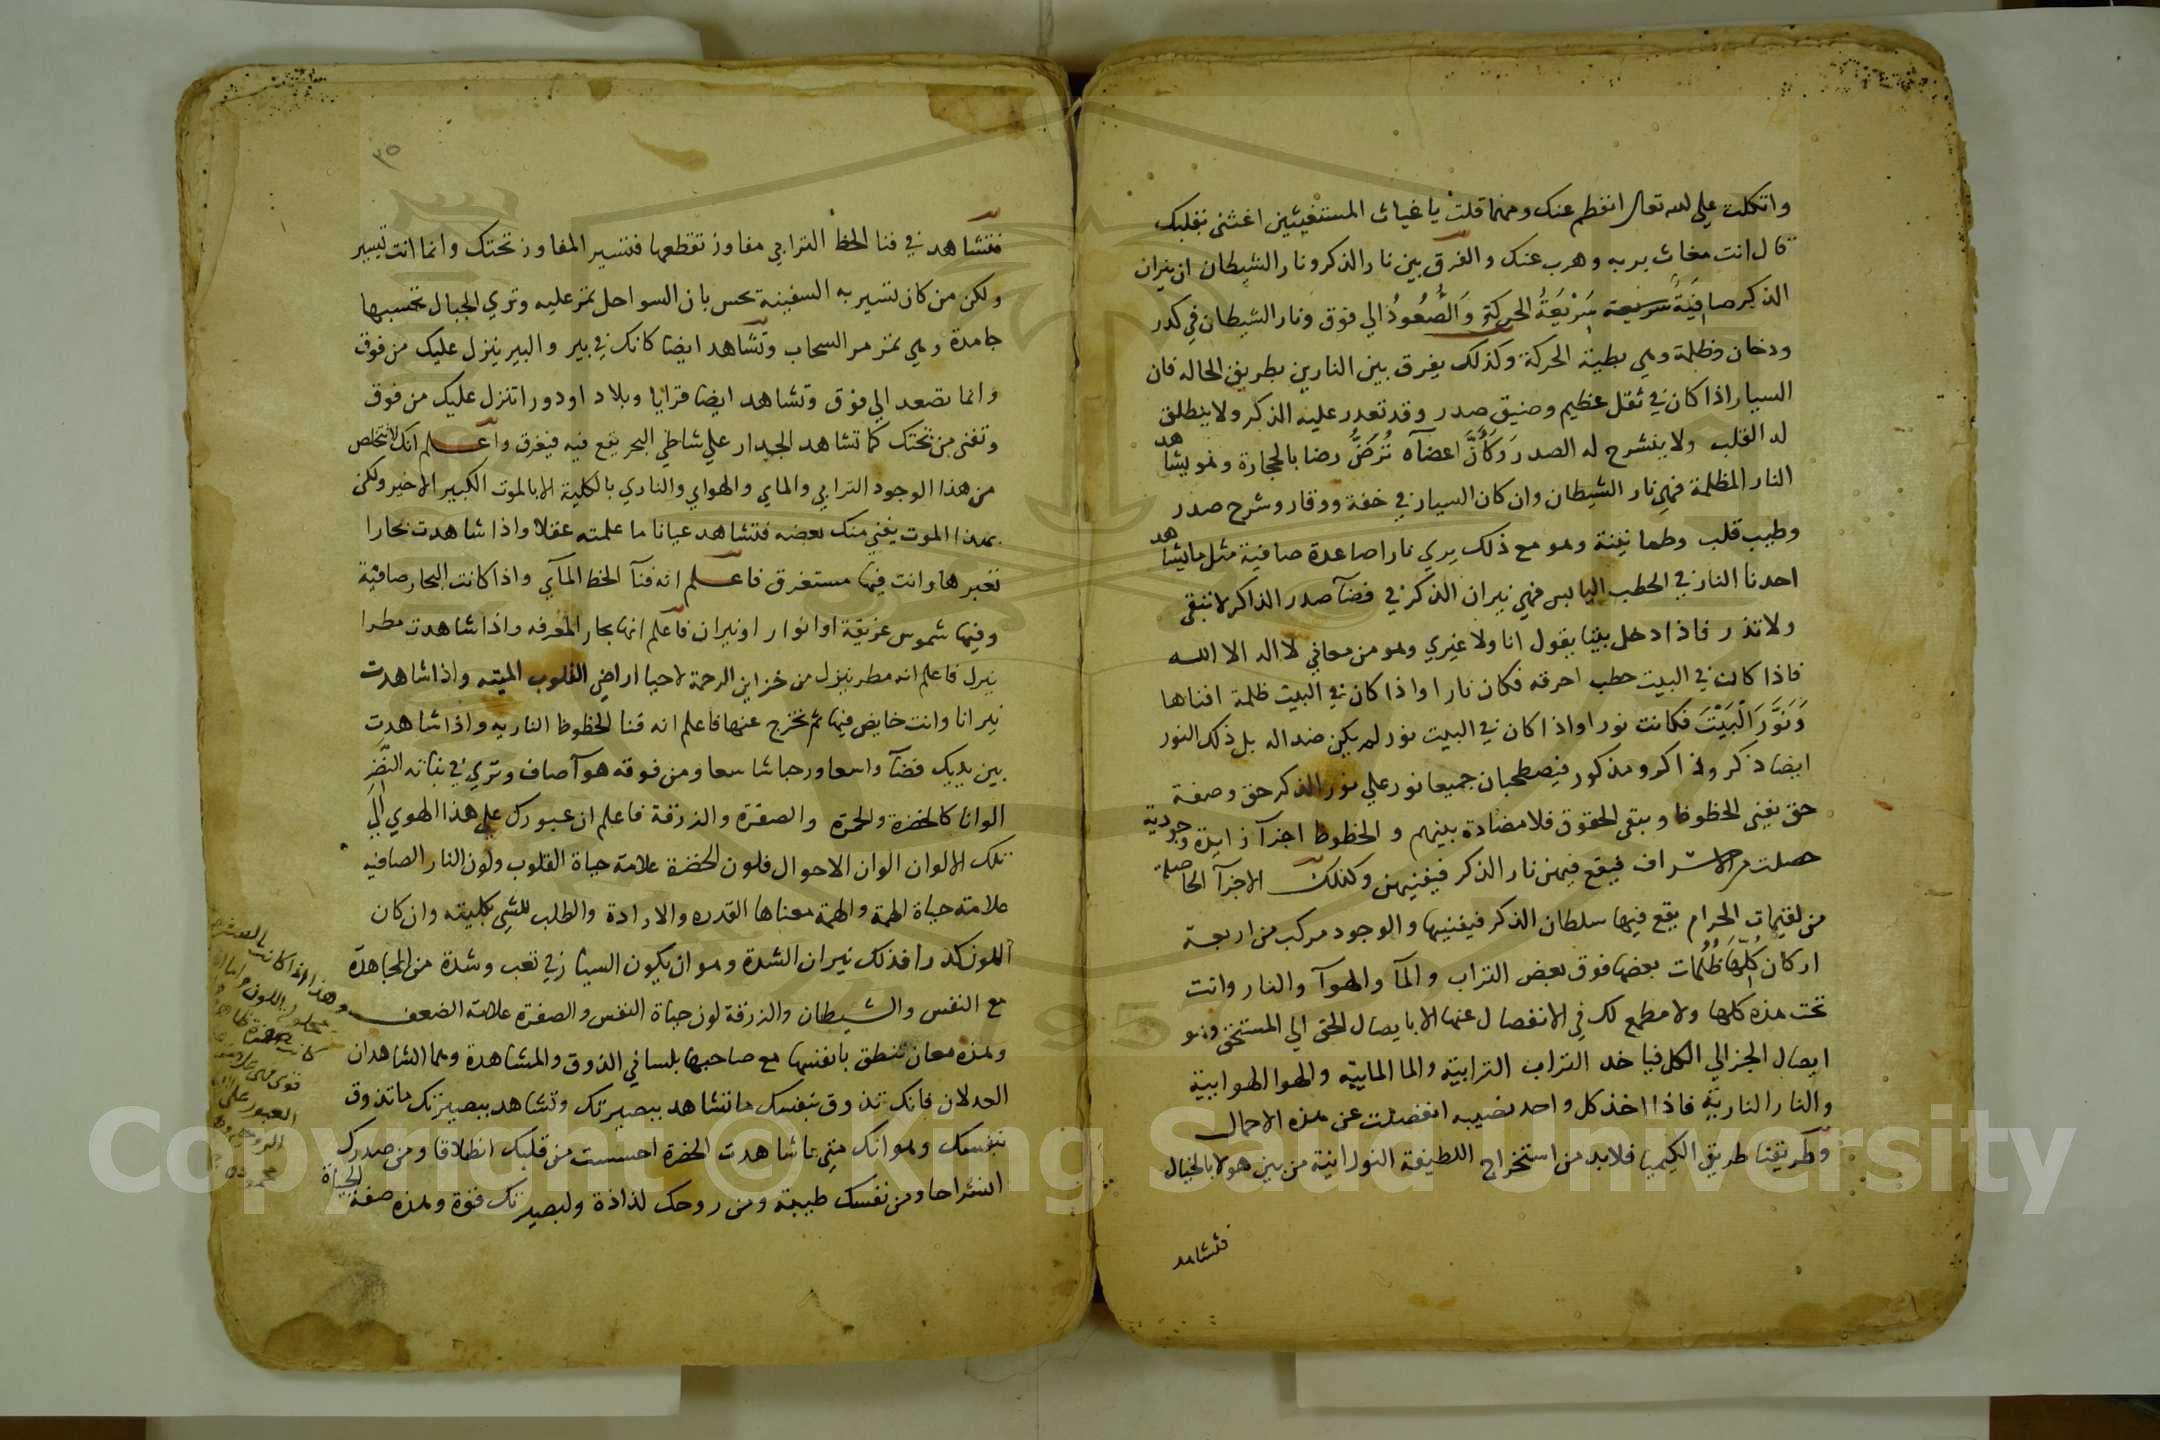 واتكلت علي الله تعالى انقطع عنك ومهما قلت يا غياث المستغيثين اغثنى بقلبك
قال انت مغاث بربه وهرب عنك والفرق بين نار الذكر ونار الشيطان ان نيران
الذكر صافية سريعة سَرْيَعَةُ الحركةِ وَالصُعُودُ الي فوق ونار الشيطان في كدر
ودخان وظلمة وهي بطيئة الحركة وكذلك يفرق بين النارين بطريق الحاله فان
السيار اذا كان في ثقل عظيم وضيق صدر وقد تعدر عليه الذكر ولا ينطلق
له القلب ولا ينشرح له الصدر وَكَأَنَّ اعضآه تُرَضُّ رضا بالحجارة وهو يشاهد
النار المظلمة فهي نار الشيطان وان كان السيار في خفة ووقار وشرح صدر
وطيب قلب وطمانينة وهو مع ذلك يري نارا صاعدة صافية مثل ما يشاهد
احدنا النار في الحطب اليابس فهي نيران الذكر في فضآ صدر الذاكر لا تبقى
ولا تذر فاذا دخل بيتا يقول انا ولا غيري وهو من معاني لا اله الا الله
فاذا كان في البيت حطب احرقه فكان نارا واذا كان في البيت ظلمة افناها
وَنَوَّرَ الْبَيْتَ فكانت نورا واذا كان في البيت نور لم يكن ضدا له بل ذلك النور
ايضا ذكر وذاكر ومذكور فيصطحبان جميعا نور علي نور الذكر حق وصفة
حق يفنى الحظوظ ويبقى الحقوق فلا مضادة بينهم والحظوظ اجزآ زايدة وجودية
حصلت من الاسراف فيقع فيهن نار الذكر فيفنيهن وكذلك الاجزآ الحاصلة
من لقيمات الحرام يقع فيها سلطان الذكر فيفنيها والوجود مركب من اربعة
اركان كُلّهَا ظُلُمات بعضها فوق بعض التراب والمآ والهوآ والنار وانت
تحت هذه كلها ولا مطمع لك في الانفصال عنها الا بايصال الحق الي المستحق وهو
ايصال الجز الي الكل فياخد التراب الترابية والما المايية والهوا الهوايية
والنار النارية فاذا اخذ كل واحد نصيبه انفصلت عن هذه الاحمال
وطريقنا طريق الكيميا فلابد من استخراج اللطيفة النورانية من بين هولا بالجبال
فتشاهد
٣٥
فتشاهد في فنا الحظ الترابي مفاوز تقطعها فتسير المفاوز تحتك وانما انت تسير
ولكن من كان تسير به السفينة يحس بان السواحل تمر عليه وتري الجبال تحسبها
جامدة وهي تمر مر السحاب وتشاهد ايضا كانك في بير والبير ينزل عليك من فوق
وانما تصعد الي فوق وتشاهد ايضا قرايا وبلاد او دورا تنزل عليك من فوق
وتفنى من تحتك كما تشاهد الجدار علي شاطي البحر يقع فيه فيغرق واعلم انك لا تتخلص
من هذا الوجود الترابي والماي والهواي والناري بالكلية الا بالموت الكبير الاخير ولكن
بهذا الموت يفني منك بعضه فتشاهد عيانا ما علمته عقلا واذا شاهدت بحارا
تعبرها وانت فيها مستغرق فاعلم انه فنآ الحظ المآي واذا كانت البحار صافية
وفيها شموس غريقة او انوار او نيران فاعلم انها بحار المعرفه واذا شاهدت مطرا
ينزل فاعلم انه مطر ينزل من خزاين الرحمة لاحيا اراضي القلوب الميته واذا شاهدت
نيرانا وانت خايض فيها ثم تخرج عنها فاعلم انه فنا الحظوظ الناريه واذا شاهدت
بين يديك فضآ واسعا ورحبا شاسعا ومن فوقه هوآ صاف وتري في نهاية النَّظَرِ
الوانا كالخضرة والحمرة والصفرة والزرقة فاعلم ان عبورك علي هذا الهوي اِلَي
تلك الالوان الوان الاحوال فلون الخضرة علامة حياة القلوب ولون النار الصافيه
علامة حياة الهمة والهمة معناها القدره والارادة والطلب للشي بكليته وان كان
اللون كدرا فذلك نيران الشدة وهو ان يكون السيار في تعب وشدة من المجاهدة
مع النفس والشيطان والزرقة لون حياة النفس والصفرة علامة الضعف
وهذه معان تنطق بانفسها مع صاحبها بلساني الذوق والمشاهدة وهما الشاهدان
العدلان فانك تذوق بنفسك ما تشاهد ببصيرتك وتشاهد ببصيرتك ما تذوق
بنفسك وهو انك متي ما شاهدت الخضرة احسست من قلبك انطلاقا ومن صدرك
انشراحا ومن نفسك طيبة ومن روحك لذاذة ولبصيرتك قوة وهذه صفة الحياة
وهذا اذا كانت الصفرة